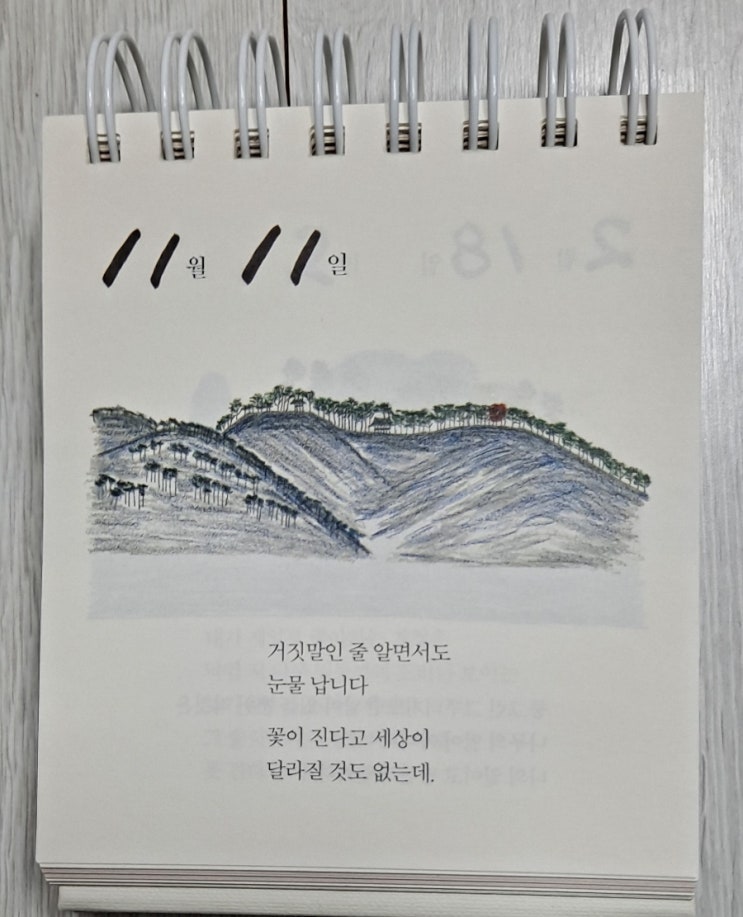 11월 11일
거짓말인 줄 알면서도
눈물 납니다
꽃이 진다고 세상이
달라질 것도 없는데.